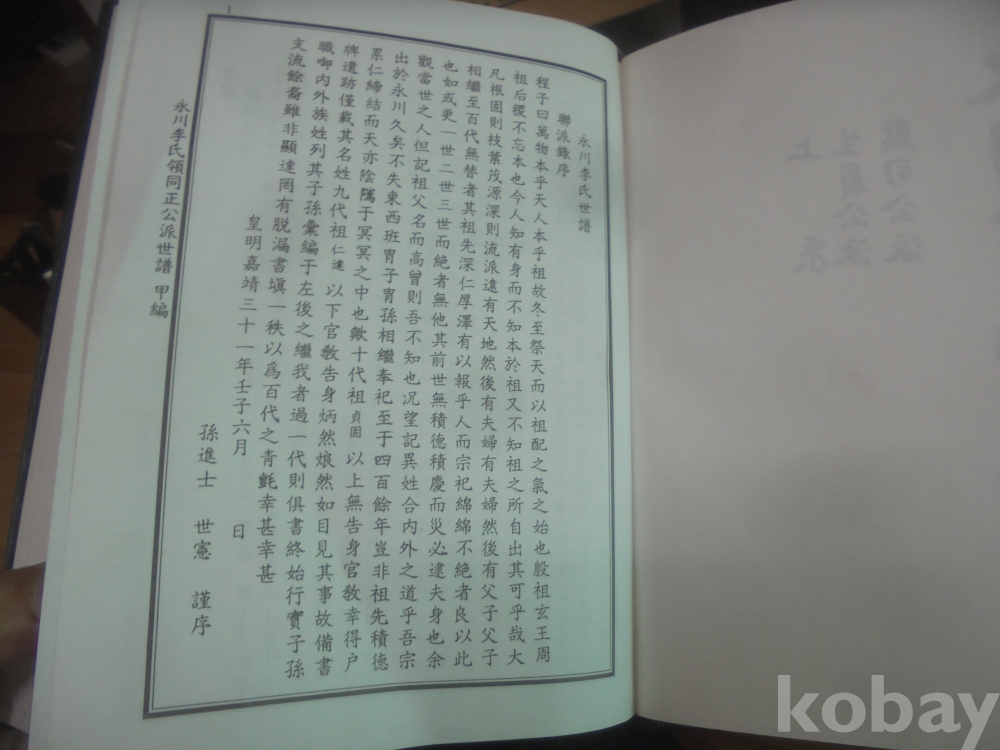 永川李氏世譜
聯派錄序
程子曰萬物本乎天人本乎祖故冬至祭天而以祖配之氣之始也殷祖玄王周
祖后稷不忘本也今人知有身而不知本於祖又不知祖之所自出其可乎哉大
凡根固則枝葉茂源深則流派遠有天地然後有夫婦有夫婦然後有父子父子
相繼至百代無替者其祖先深仁厚澤有以報乎人而宗祀綿綿不絶者良以此
也如或更一世二世三世而絶者無他其前世無積德積慶而災必逮夫身也余
觀當世之人但記祖父名而高曾則吾不知也况望記異姓合內外之道乎吾宗
出於永川久矣不失東西班冑子冑孫相繼奉祀至于四百餘年豈非祖先積德
累仁締結而天亦陰騭于冥冥之中也歟十代祖貞固以上無告身官敎幸得户
牌遺跡僅載其名姓九代祖仁達以下官敎告身炳然烺然如目見其事故備書
職啣內外族姓列其子孫彙編于左後之繼我者過一代則俱書終始行實子孫
支流餘裔雖非顯達罔有脱漏書塡一秩以爲百代之青氈幸甚幸甚
皇明嘉靖三十一年壬子六月 日
孫進士 世憲 謹序
永川李氏領同正公派世譜 甲編
1
上
生員公派系
公派
kobay